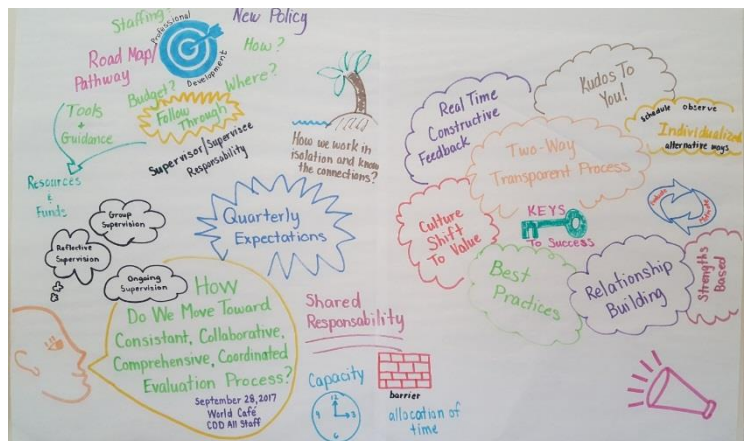 Staffing?
Professional
Development
New Policy
Road Map/
Pathway
How?
Budget?
Where?
Follow
Through
Tools
+
Guidance
Supervisor/Supervisee
Responsability
Resources
&
Funds
How we work in
isolation and know
the connections?
Group
Supervision
Reflective
Supervision
Ongoing
Supervision
Quarterly
Expectations
How
Do We Move Toward
Consistant, Collaborative,
Comprehensive, Coordinated
Evaluation Process?
September 28, 2017
World Café
CDD All Staff
Shared
Responsability
Capacity
12
3
6
9
barrier
allocation of
time
Real Time
Constructive
Feedback
Kudos To
You!
schedule observe
Individualized
alternative ways
Two-Way
Transparent Process
Culture
Shift
To Value
KEYS
To Success
Evaluate
Best
Practices
Relationship
Building
Strengths
Based